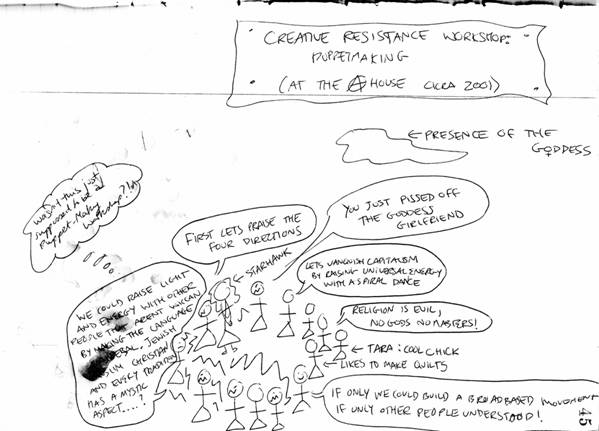 CREATIVE RESISTANCE WORKSHOP:
PUPPETMAKING
(AT THE Ⓐ HOUSE CIRCA 2001)
←PRESENCE OF THE
GODDESS
wasn't this just
supposed to be a
puppet-making
workshop?!
FIRST LETS PRAISE THE
FOUR DIRECTIONS
←STARHAWK
YOU JUST PISSED OFF
THE GODDESS
GIRLFRIEND
LETS VANQUISH CAPITALISM
BY RAISING UNIVERSAL ENERGY
WITH A SPIRAL DANCE
RELIGION IS EVIL,
NO GODS NO MASTERS!
←TARA: COOL CHICK
←LIKES TO MAKE QUILTS
WE COULD RAISE LIGHT
AND ENERGY WITH OTHER
PEOPLE THAT ARENT WICCAN
BY MAKING THE LANGUAGE
JEWISH
CHRISTIAN
AND EVERY TRADITION
HAS A MYSTIC
ASPECT....?
IF ONLY WE COULD BUILD A BROADBASED MOVEMENT
IF ONLY OTHER PEOPLE UNDERSTOOD!
45